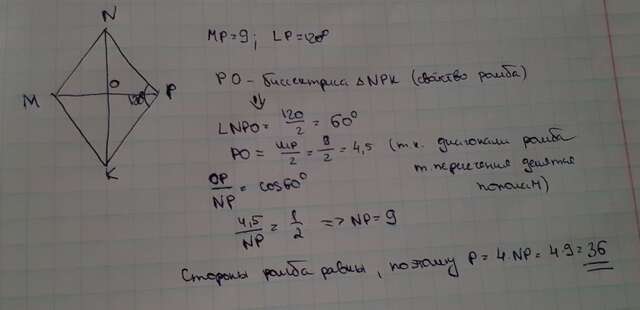 N
MP=9; LP=120°
O
M
P
120°
K
PO - биссектриса ΔNPK (свойство ромба)
LNPO = 120/2 = 60°
PO = MP/2 = 9/2 = 4,5 (т.к. диагонали ромба
т. пересечения делятся
пополам)
OP/NP = cos60°
4,5/NP = 1/2 => NP=9
Стороны ромба равны, поэтому P = 4·NP = 4·9 = 36